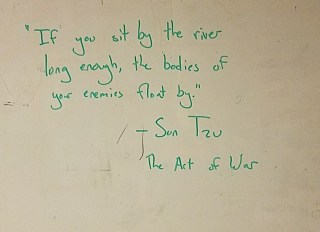 "If you sit by the river
long enough, the bodies of
your enemies float by."
- Sun Tzu
The Art of War